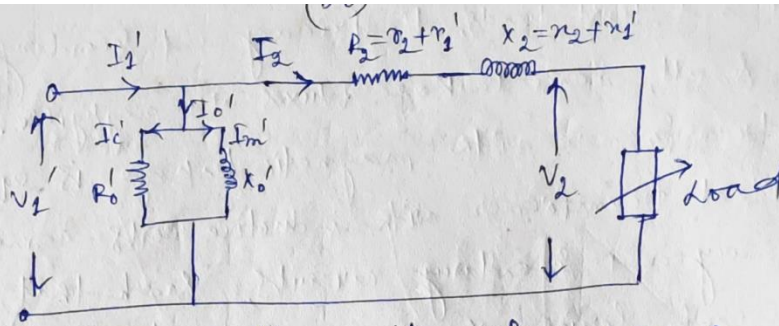 I₁' I₂ R₂=r₂+r₁' X₂=x₂+x₁'
I₀'
Ic' Im'
V₁' R₀' X₀' V₂ Load